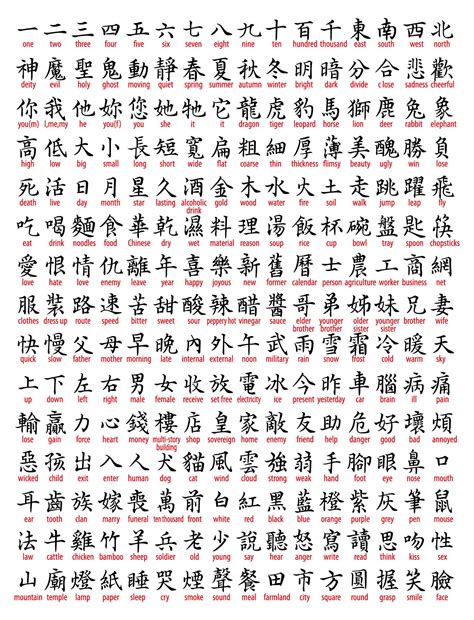 一 二 三 四 五 六 七 八 九 十 百 千 東 南 西 北
one two three four five six seven eight nine ten hundred thousand east south west north
神 魔 聖 鬼 動 靜 春 夏 秋 冬 明 暗 分 合 悲 歡
deity evil holy ghost moving quiet spring summer autumn winter bright dark divide close sadness cheerful
你 我 他 妳 您 她 牠 它 龍 虎 豹 馬 獅 鹿 兔 象
you(m) I,me,my he you(f) you she it it dragon tiger leopard horse lion deer rabbit elephant
高 低 大 小 長 短 寬 扁 粗 細 厚 薄 美 醜 勝 負
high low big small long short wide flat coarse thin thickness flimsy beauty ugly win lose
死 活 日 月 星 久 酒 金 木 水 火 土 走 跳 躍 飛
death live day month star lasting alcoholic drink gold wood water fire soil walk jump leap fly
吃 喝 麵 食 華 乾 濕 料 理 湯 飯 杯 碗 盤 匙 筷
eat drink noodles food Chinese dry wet material reason soup rice cup bowl tray spoon chopsticks
愛 恨 情 仇 離 年 喜 樂 新 舊 曆 士 農 工 商 網
love hate love enemy leave year happy joyous new former calendar person agriculture worker business net
服 裝 路 速 苦 甜 酸 辣 醋 醬 哥 弟 姊 妹 兄 妻
clothes dress up route speed bitter sweet sour peppery hot vinegar sauce elder brother younger brother elder sister younger sister elder brother wife
快 慢 父 母 早 晚 內 外 午 武 雨 雪 霜 冷 暖 天
quick slow father mother morning late internal external noon military rain snow frost cold warm sky
上 下 左 右 男 女 收 放 電 冰 今 昨 車 腦 病 痛
up down left right male female receive set free electricity ice present yesterday car brain ill pain
輸 贏 力 心 錢 樓 店 皇 家 敵 友 助 危 好 壞 煩
lose gain force heart money multi-story building shop sovereign home enemy friend help danger good bad annoyed
惡 孩 出 入 人 犬 貓 風 雲 強 弱 手 腳 眼 鼻 口
wicked child exit enter human dog cat wind cloud strong weak hand foot eye nose mouth
耳 齒 族 嫁 喪 萬 前 白 紅 黑 藍 橙 紫 灰 筆 鼠
ear tooth clan marry funeral ten thousand front white red black blue orange purple grey pen mouse
法 牛 雞 竹 羊 兵 老 少 說 聽 怒 寫 讀 思 吻 性
law cattle chicken bamboo sheep soldier old young say hear anger write read think kiss sex
山 廟 燈 紙 睡 哭 煙 聲 餐 田 市 方 圓 握 笑 臉
mountain temple lamp paper sleep cry smoke sound meal farmland city square round grasp smile face